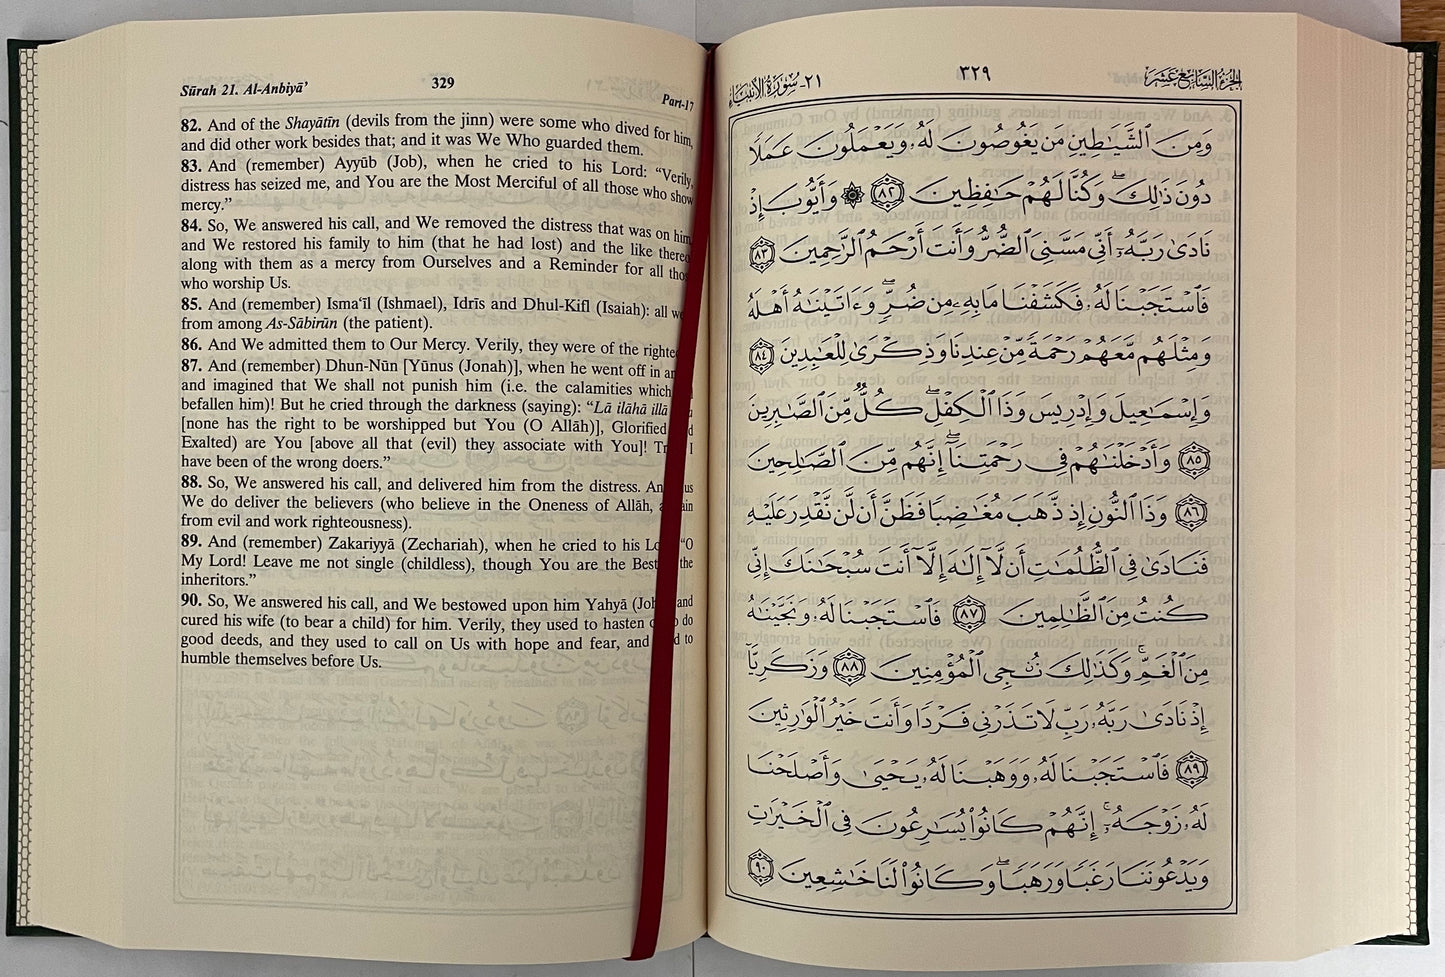 Sūrah 21. Al-Anbiyā’
329
Part-17
82. And of the Shayātīn (devils from the jinn) were some who dived for him,
and did other work besides that; and it was We Who guarded them.
83. And (remember) Ayyūb (Job), when he cried to his Lord: “Verily,
distress has seized me, and You are the Most Merciful of all those who show
mercy.”
84. So, We answered his call, and We removed the distress that was on him
and We restored his family to him (that he had lost) and the like thereof
along with them as a mercy from Ourselves and a Reminder for all
who worship Us.
85. And (remember) Isma‘īl (Ishmael), Idrīs and Dhul-Kifl (Isaiah): all
from among As-Sābirūn (the patient).
86. And We admitted them to Our Mercy. Verily, they were of the
87. And (remember) Dhun-Nūn [Yūnus (Jonah)], when he went off in
and imagined that We shall not punish him (i.e. the calamities which
befallen him)! But he cried through the darkness (saying): “Lā ilāhā illā
[none has the right to be worshipped but You (O Allāh)], Glorified
Exalted) are You [above all that (evil) they associate with You]! I
have been of the wrong doers.”
88. So, We answered his call, and delivered him from the distress. us
We do deliver the believers (who believe in the Oneness of Allāh,
from evil and work righteousness).
89. And (remember) Zakariyyā (Zechariah), when he cried to his “O
My Lord! Leave me not single (childless), though You are the Best the
inheritors.”
90. So, We answered his call, and We bestowed upon him Yahyā and
cured his wife (to bear a child) for him. Verily, they used to hasten do
good deeds, and they used to call on Us with hope and fear, and to
humble themselves before Us.
الجزء السابع عشر
٣٢٩
٢١- سورة الأنبياء
وَمِنَ ٱلشَّيَٰطِينِ مَن يَغُوصُونَ لَهُۥ وَيَعۡمَلُونَ عَمَلٗا
دُونَ ذَٰلِكَۖ وَكُنَّا لَهُمۡ حَٰفِظِينَ ٨٢ ۞ وَأَيُّوبَ إِذۡ
نَادَىٰ رَبَّهُۥٓ أَنِّي مَسَّنِيَ ٱلضُّرُّ وَأَنتَ أَرۡحَمُ ٱلرَّٰحِمِينَ ٨٣
فَٱسۡتَجَبۡنَا لَهُۥ فَكَشَفۡنَا مَا بِهِۦ مِن ضُرّٖۖ وَءَاتَيۡنَٰهُ أَهۡلَهُۥ
وَمِثۡلَهُم مَّعَهُمۡ رَحۡمَةٗ مِّنۡ عِندِنَا وَذِكۡرَىٰ لِلۡعَٰبِدِينَ ٨٤
وَإِسۡمَٰعِيلَ وَإِدۡرِيسَ وَذَا ٱلۡكِفۡلِۖ كُلّٞ مِّنَ ٱلصَّٰبِرِينَ
٨٥ وَأَدۡخَلۡنَٰهُمۡ فِي رَحۡمَتِنَآۖ إِنَّهُم مِّنَ ٱلصَّٰلِحِينَ
٨٦ وَذَا ٱلنُّونِ إِذ ذَّهَبَ مُغَٰضِبٗا فَظَنَّ أَن لَّن نَّقۡدِرَ عَلَيۡهِ
فَنَادَىٰ فِي ٱلظُّلُمَٰتِ أَن لَّآ إِلَٰهَ إِلَّآ أَنتَ سُبۡحَٰنَكَ إِنِّي
كُنتُ مِنَ ٱلظَّٰلِمِينَ ٨٧ فَٱسۡتَجَبۡنَا لَهُۥ وَنَجَّيۡنَٰهُ
مِنَ ٱلۡغَمِّۚ وَكَذَٰلِكَ نُـۨجِي ٱلۡمُؤۡمِنِينَ ٨٨ وَزَكَرِيَّآ
إِذۡ نَادَىٰ رَبَّهُۥ رَبِّ لَا تَذَرۡنِي فَرۡدٗا وَأَنتَ خَيۡرُ ٱلۡوَٰرِثِينَ
٨٩ فَٱسۡتَجَبۡنَا لَهُۥ وَوَهَبۡنَا لَهُۥ يَحۡيَىٰ وَأَصۡلَحۡنَا
لَهُۥ زَوۡجَهُۥٓۚ إِنَّهُمۡ كَانُواْ يُسَٰرِعُونَ فِي ٱلۡخَيۡرَٰتِ
وَيَدۡعُونَنَا رَغَبٗا وَرَهَبٗاۖ وَكَانُواْ لَنَا خَٰشِعِينَ ٩٠